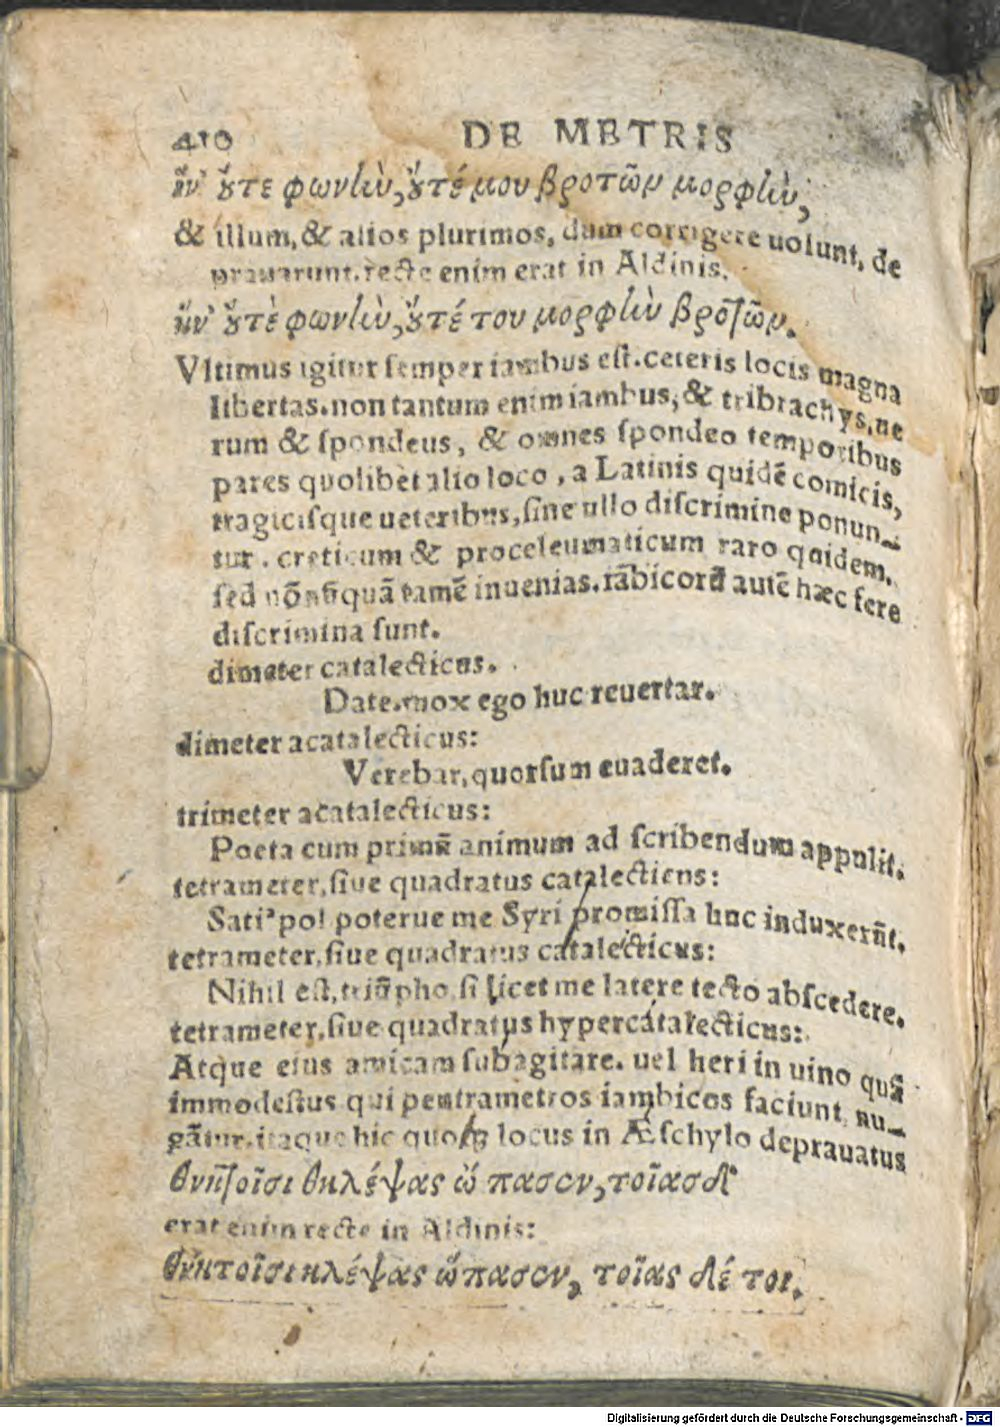 410 DE METRIS
ἵν' ὔτε φωνὴν, ὔτέ μου βροτῶν μορφὴν,
& illum, & alios plurimos, dum corrigere uolunt, de
prauarunt. recte enim erat in Aldinis.
ἵν' ὔτὲ φωνὴν, ὔτέ του μορφὴν βροτῶν.
Vltimus igitur semper iambus est. ceteris locis magna
libertas. non tantum enim iambus, & tribrachys, ue
rum & spondeus, & omnes spondeo temporibus
pares quolibet alio loco, a Latinis quidē comicis,
tragicisque ueteribus, sine ullo discrimine ponun-
tur. creticum & proceleumaticum raro quidem.
sed nō nūquā tamē inuenias. iābicorū autē hæc fere
discrimina sunt.
dimeter catalecticus.
Date. mox ego huc reuertar.
dimeter acatalecticus:
Verebar, quorsum euaderet.
trimeter acatalecticus:
Poeta cum primū animum ad scribendum appulit.
tetrameter, siue quadratus catalecticus:
Satiꝰ pol poterue me Syri promissa huc induxerūt.
tetrameter, siue quadratus catalecticus:
Nihil est, triūpho, si licet me latere tecto abscedere.
tetrameter, siue quadratus hypercatalecticus:
Atque eius amicam subagitare. uel heri in uino quā
immodestus qui pentrametros iambicos faciunt, nu-
gātur. itaque hic quoq locus in Æschylo deprauatus
θνητοῖσι θηλέψας ὤπασεν, τοῖασδ'
erat enim recte in Aldinis:
θνητοῖσι κλέψας ὤπασεν, τοῖας δέ τοι.
Digitalisierung gefördert durch die Deutsche Forschungsgemeinschaft - DFG